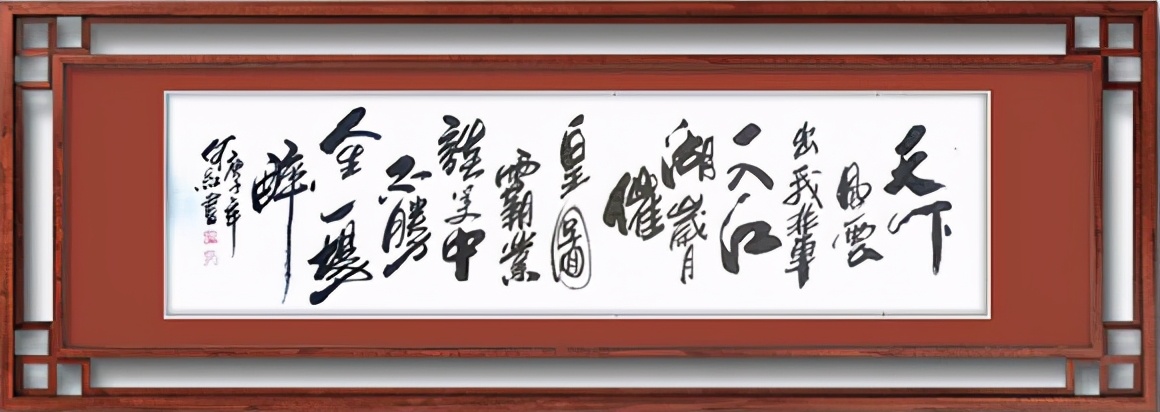 天下
風雲
出我輩
一入江
湖歲月
催
皇圖
霸業
談笑中
不勝
人生一場
醉
庚子年
何 書